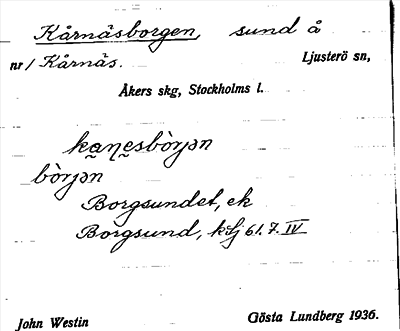 Kårnäsborgen, sund å
nr/ Kårnäs. Ljusterö sn,
Åkers skg, Stockholms l.
ka̰ɳe̬sbòrjən
bòrjən
Borgsundet, ek
Borgsund, 61. 7. IV
John Westin Gösta Lundberg 1936.